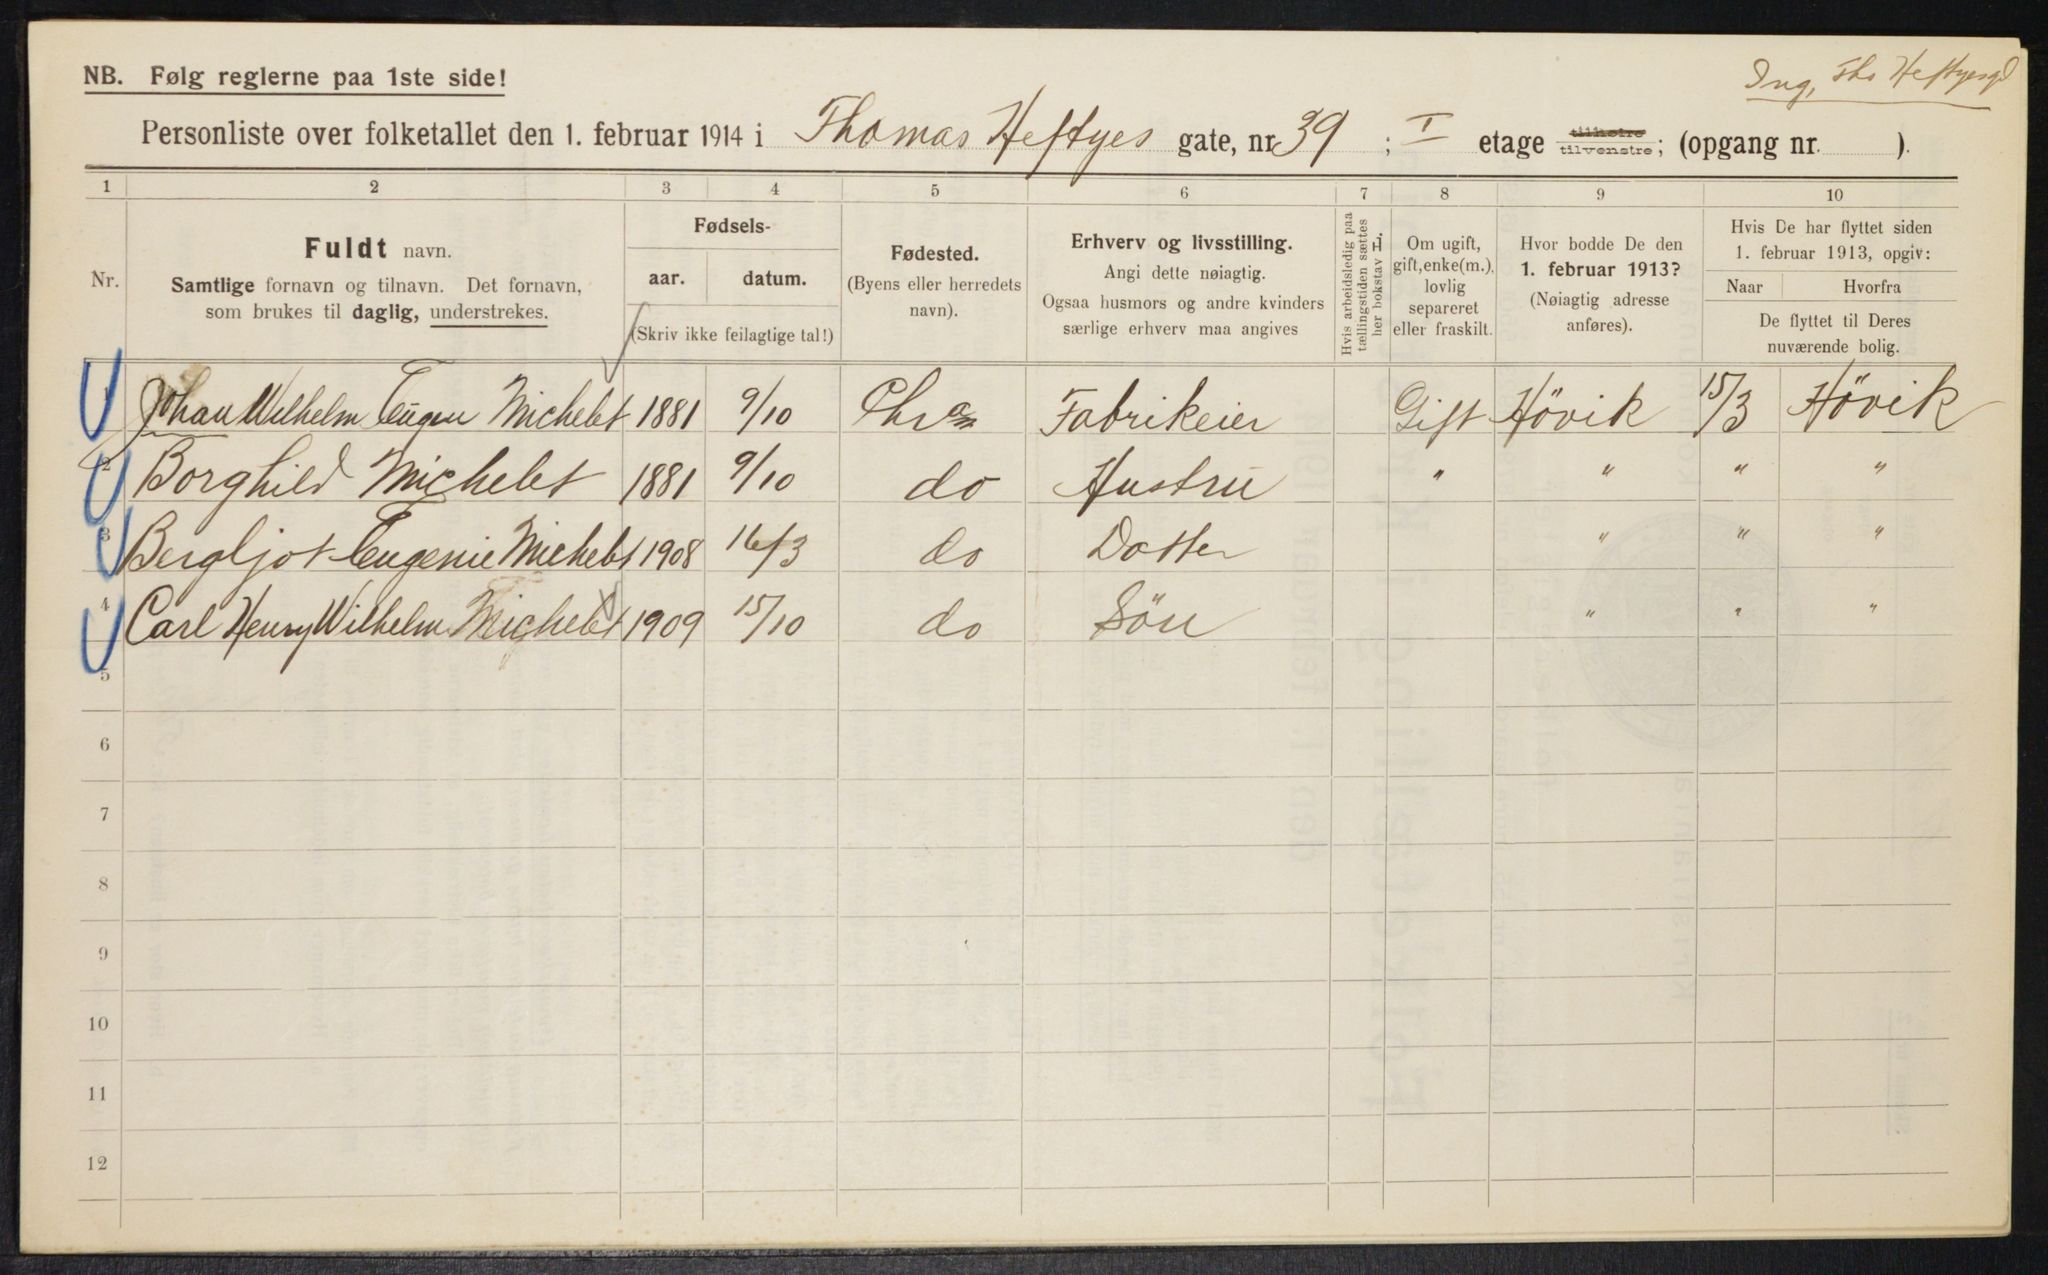 Ing, Ths Heftyesgd
NB. Følg reglerne paa 1ste side!
Personliste over folketallet den 1. februar 1914 i Thomas Heftyes gate, nr. 39 ; I etage tilhøire tilvenstre; (opgang nr. ).
1 2 3 4 5 6 7 8 9 10
Nr.
Fuldt navn.
Samtlige fornavn og tilnavn. Det fornavn,
som brukes til daglig, understrekes.
Fødsels-
aar. datum.
(Skriv ikke feilagtige tal!)
Fødested.
(Byens eller herredets
navn).
Erhverv og livsstilling.
Angi dette nøiagtig.
Ogsaa husmors og andre kvinders
særlige erhverv maa angives
Hvis arbeidsledig paa
tællingstiden sættes
her bokstav L.
Om ugift,
gift, enke(m.),
lovlig
separeret
eller fraskilt.
Hvor bodde De den
1. februar 1913?
(Nøiagtig adresse
anføres).
Hvis De har flyttet siden
1. februar 1913, opgiv:
Naar Hvorfra
De flyttet til Deres
nuværende bolig.
1 Johan Wilhelm Eugen Michelet 1881 9/10 Chra Fabrikeier Gift Hövik 15/3 Hövik
2 Borghild Michelet 1881 9/10 do Hustru " " " "
3 Bergljot Eugenie Michelet 1908 16/3 do Datter " " "
4 Carl Henry Wilhelm Michelet 1909 15/10 do Sön " " "
5
6
7
8
9
10
11
12